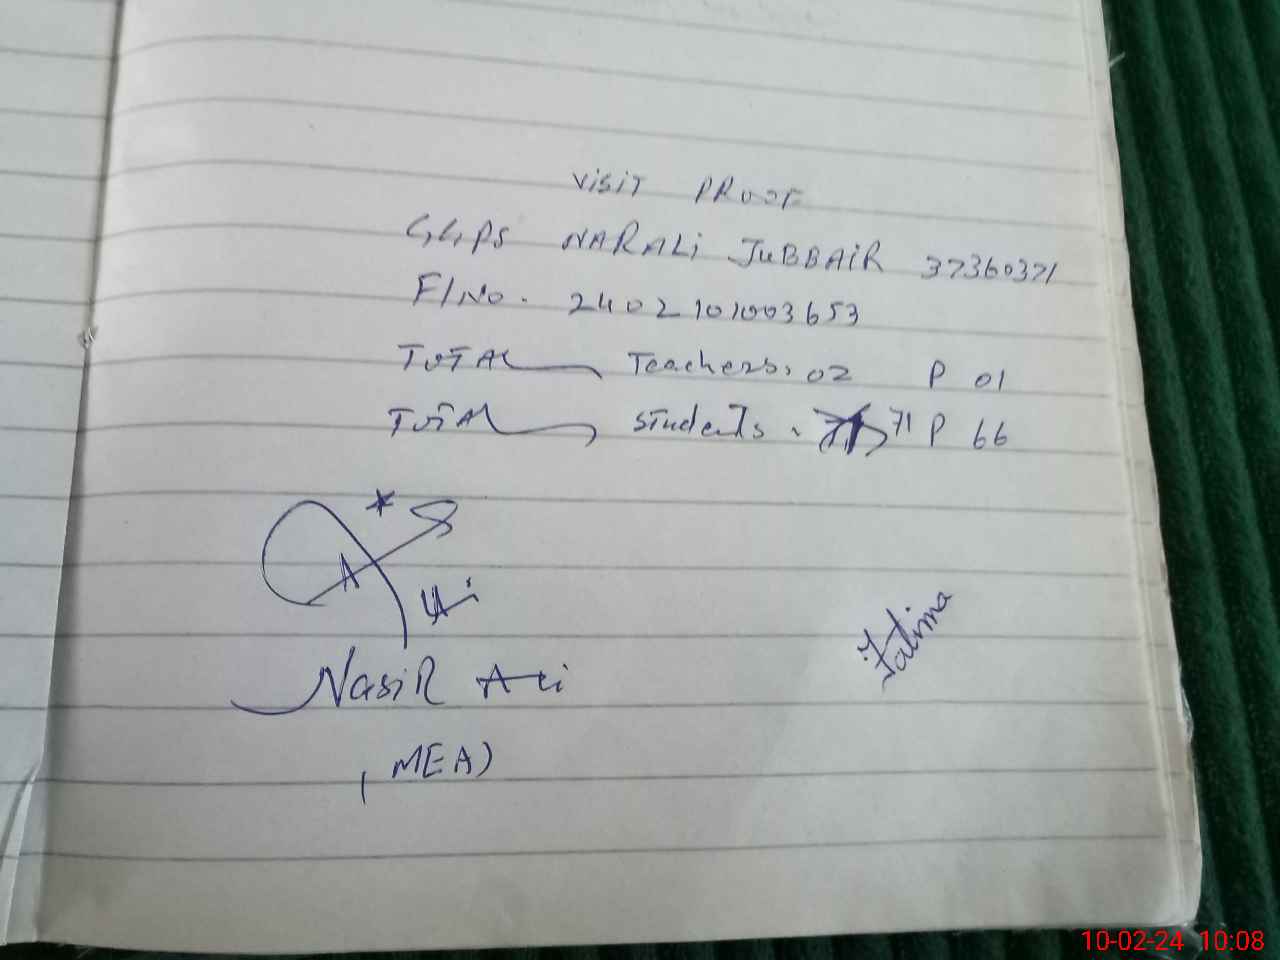 Visit PROOF
G,G,PS NARALi JuBBAiR 37360371
F/No. 2402101003653
TOTAL Teachers. 02 P 01
TOTAL Students. 71 P 66
A
Ali
Fatima
NasiR Ali
(MEA)
10-02-24 10:08